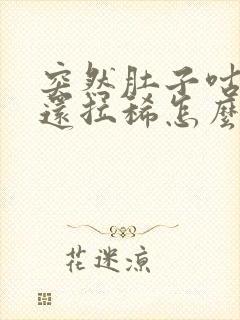 突然肚子咕
還拉稀怎麼
花迷涼